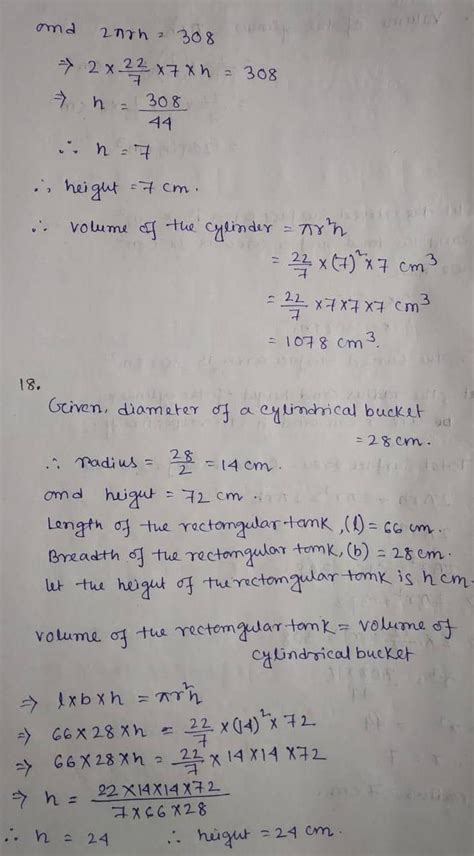 and 2πrh = 308
⇒ 2 × 22/7 × 7 × h = 308
⇒ h = 308/44
∴ h = 7
∴ height = 7 cm.
∴ volume of the cylinder = πr²h
= 22/7 × (7)² × 7 cm³
= 22/7 × 7 × 7 × 7 cm³
= 1078 cm³.
18.
Given, diameter of a cylindrical bucket
= 28 cm.
∴ radius = 28/2 = 14 cm.
and height = 72 cm.
Length of the rectangular tank, (l) = 66 cm.
Breadth of the rectangular tank, (b) = 28 cm.
let the height of the rectangular tank is h cm.
volume of the rectangular tank = volume of
cylindrical bucket
⇒ l × b × h = πr²h
⇒ 66 × 28 × h = 22/7 × (14)² × 72
⇒ 66 × 28 × h = 22/7 × 14 × 14 × 72
⇒ h = 22 × 14 × 14 × 72 / 7 × 66 × 28
∴ h = 24 ∴ height = 24 cm.